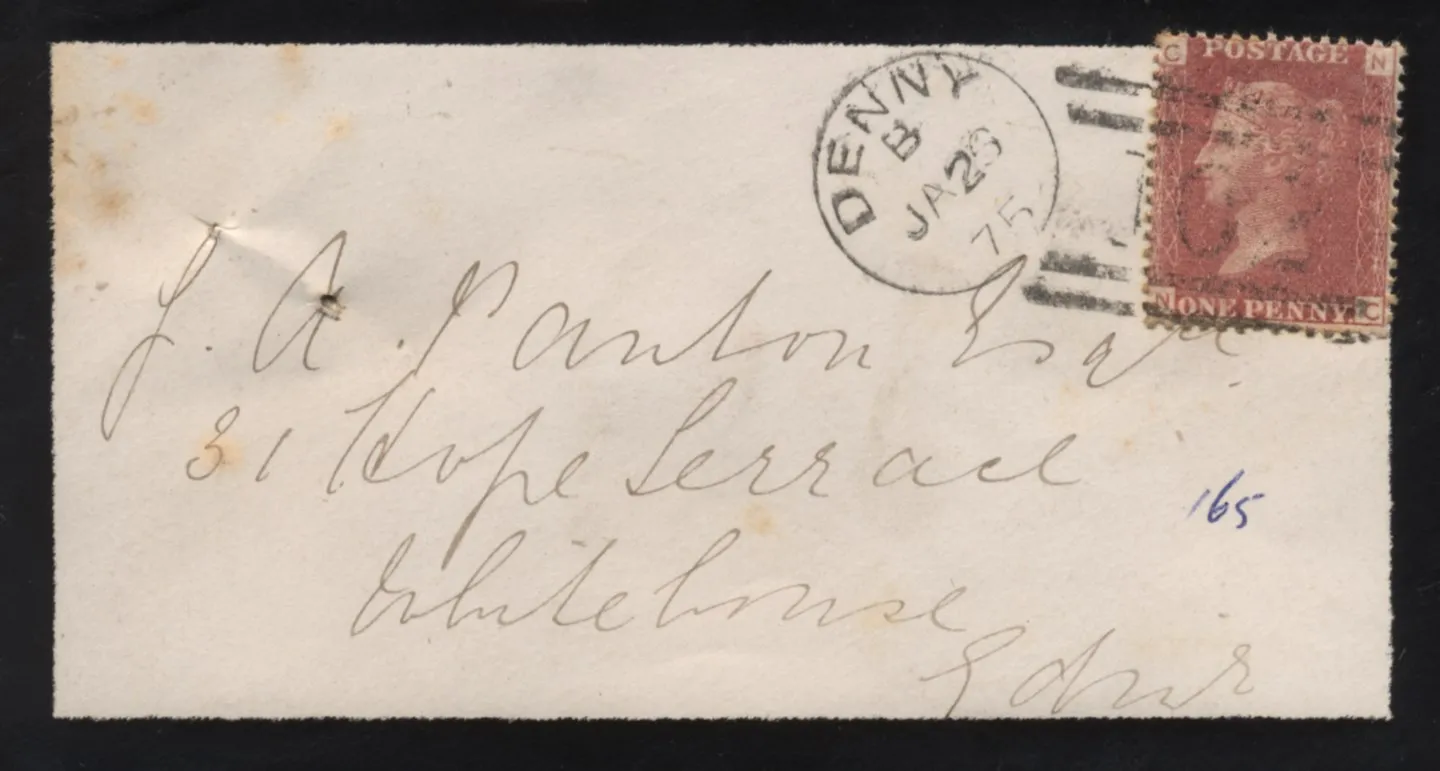 DENNY
B
JA 26
75
C POSTAGE N
N ONE PENNY. C
J. A. Panton Esqre
31 Hope Terrace
Whitehouse
Edinr
165